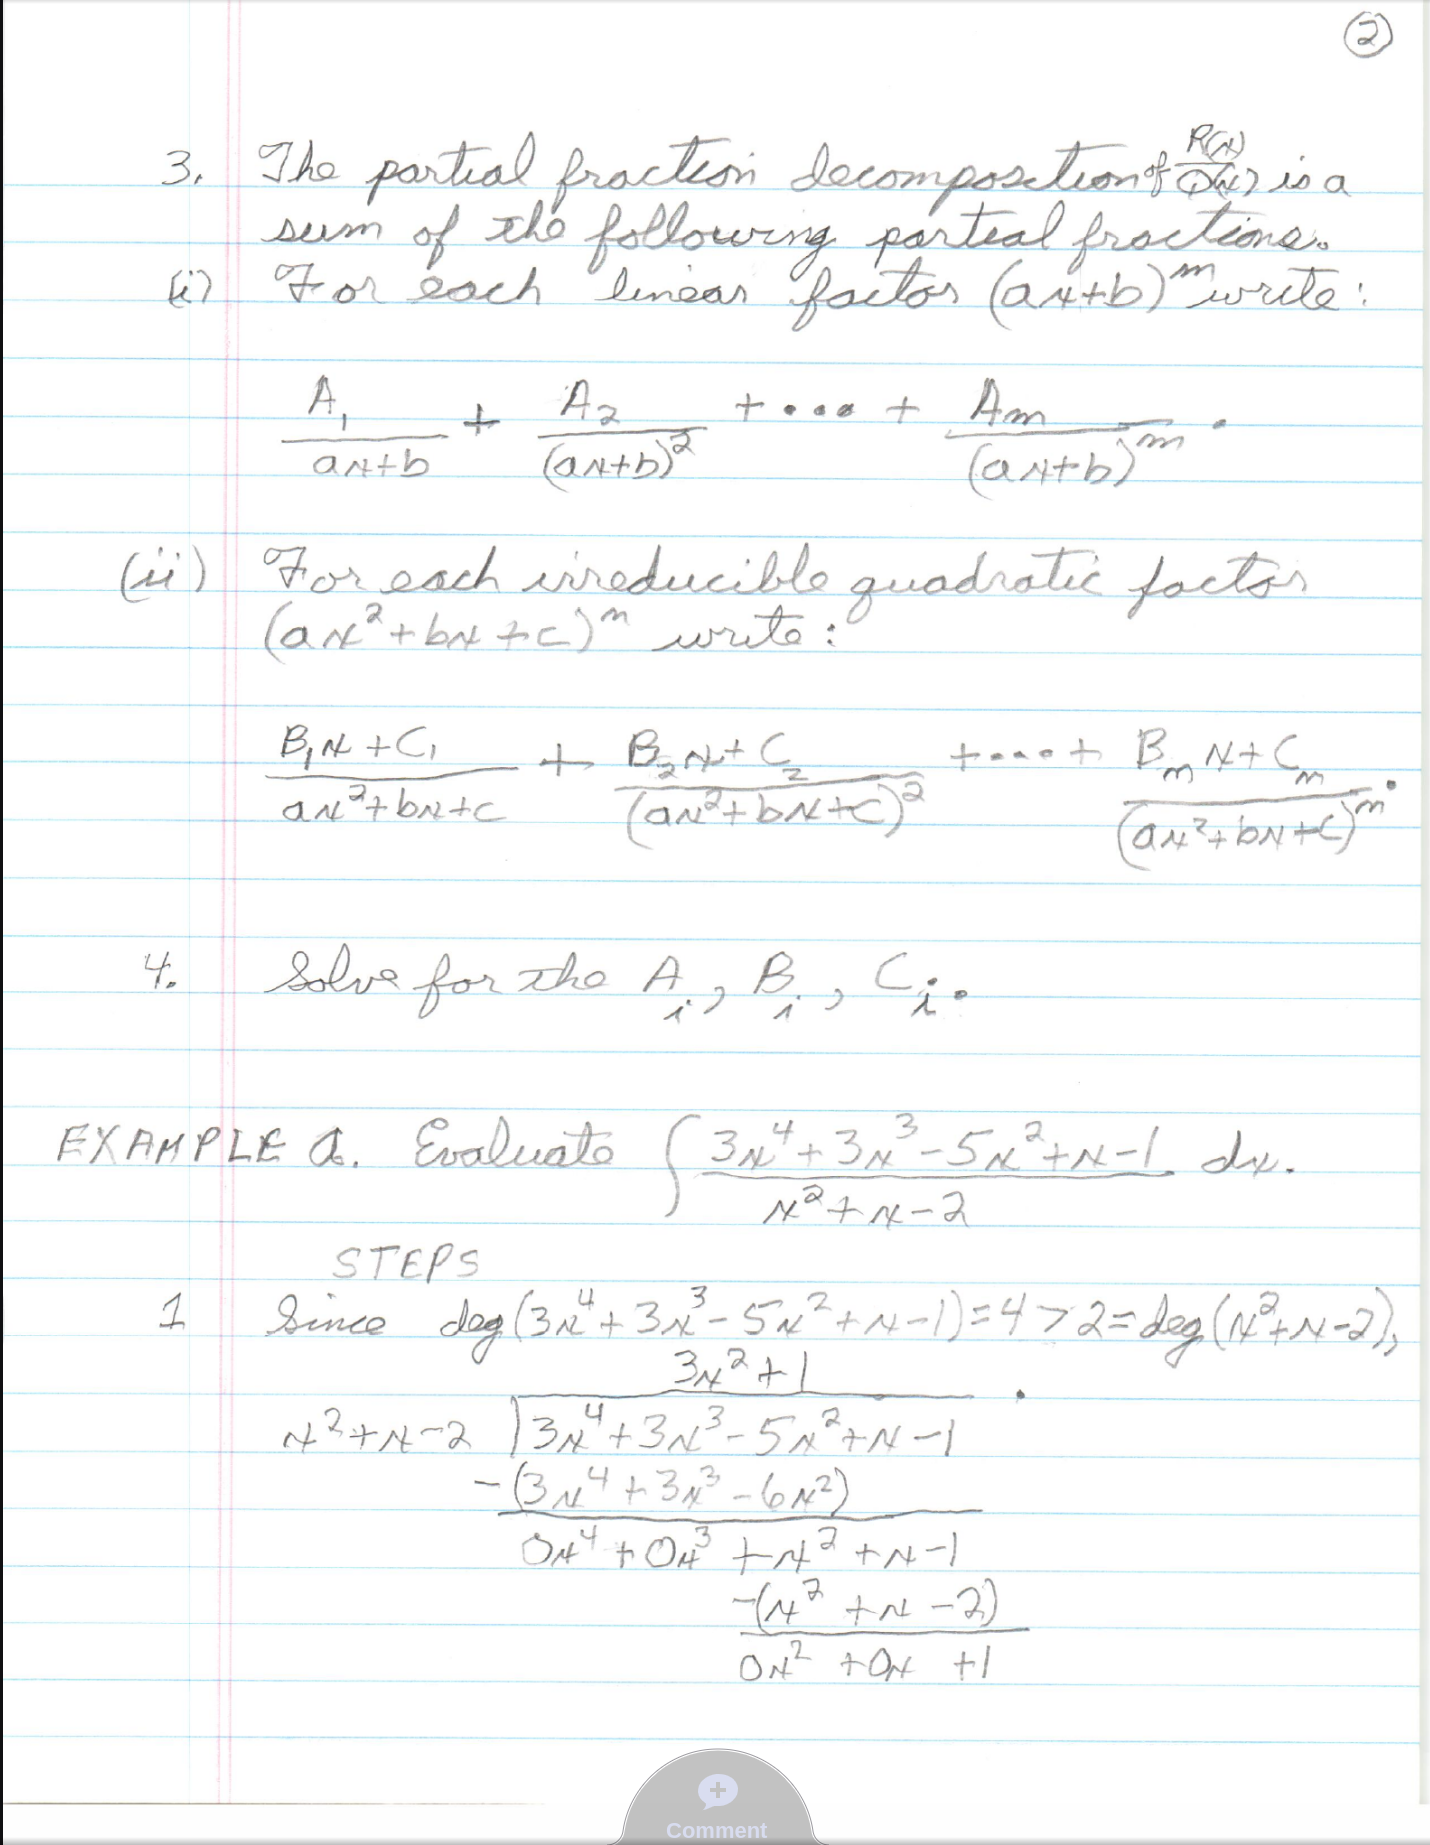 ②
3. The partial fraction decomposition of R(x)/Q(x) is a
sum of the following partial fractions.
(i) For each linear factor (ax+b)^m write:
A₁/(ax+b) + A₂/(ax+b)² + ... + Am/(ax+b)^m .
(ii) For each irreducible quadratic factor
(ax²+bx+c)^m write:
(B₁x+C₁)/(ax²+bx+c) + (B₂x+C₂)/(ax²+bx+c)² + ... + (Bm x+Cm)/(ax²+bx+c)^m .
4. Solve for the Ai, Bi, Ci.
EXAMPLE a. Evaluate ∫ (3x⁴+3x³-5x²+x-1)/(x²+x-2) dx.
STEPS
1 Since deg(3x⁴+3x³-5x²+x-1)=4>2=deg(x²+x-2),
3x²+1 .
x²+x-2 )3x⁴+3x³-5x²+x-1
-(3x⁴+3x³-6x²)
0x⁴+0x³+x²+x-1
-(x²+x-2)
0x²+0x+1
Comment